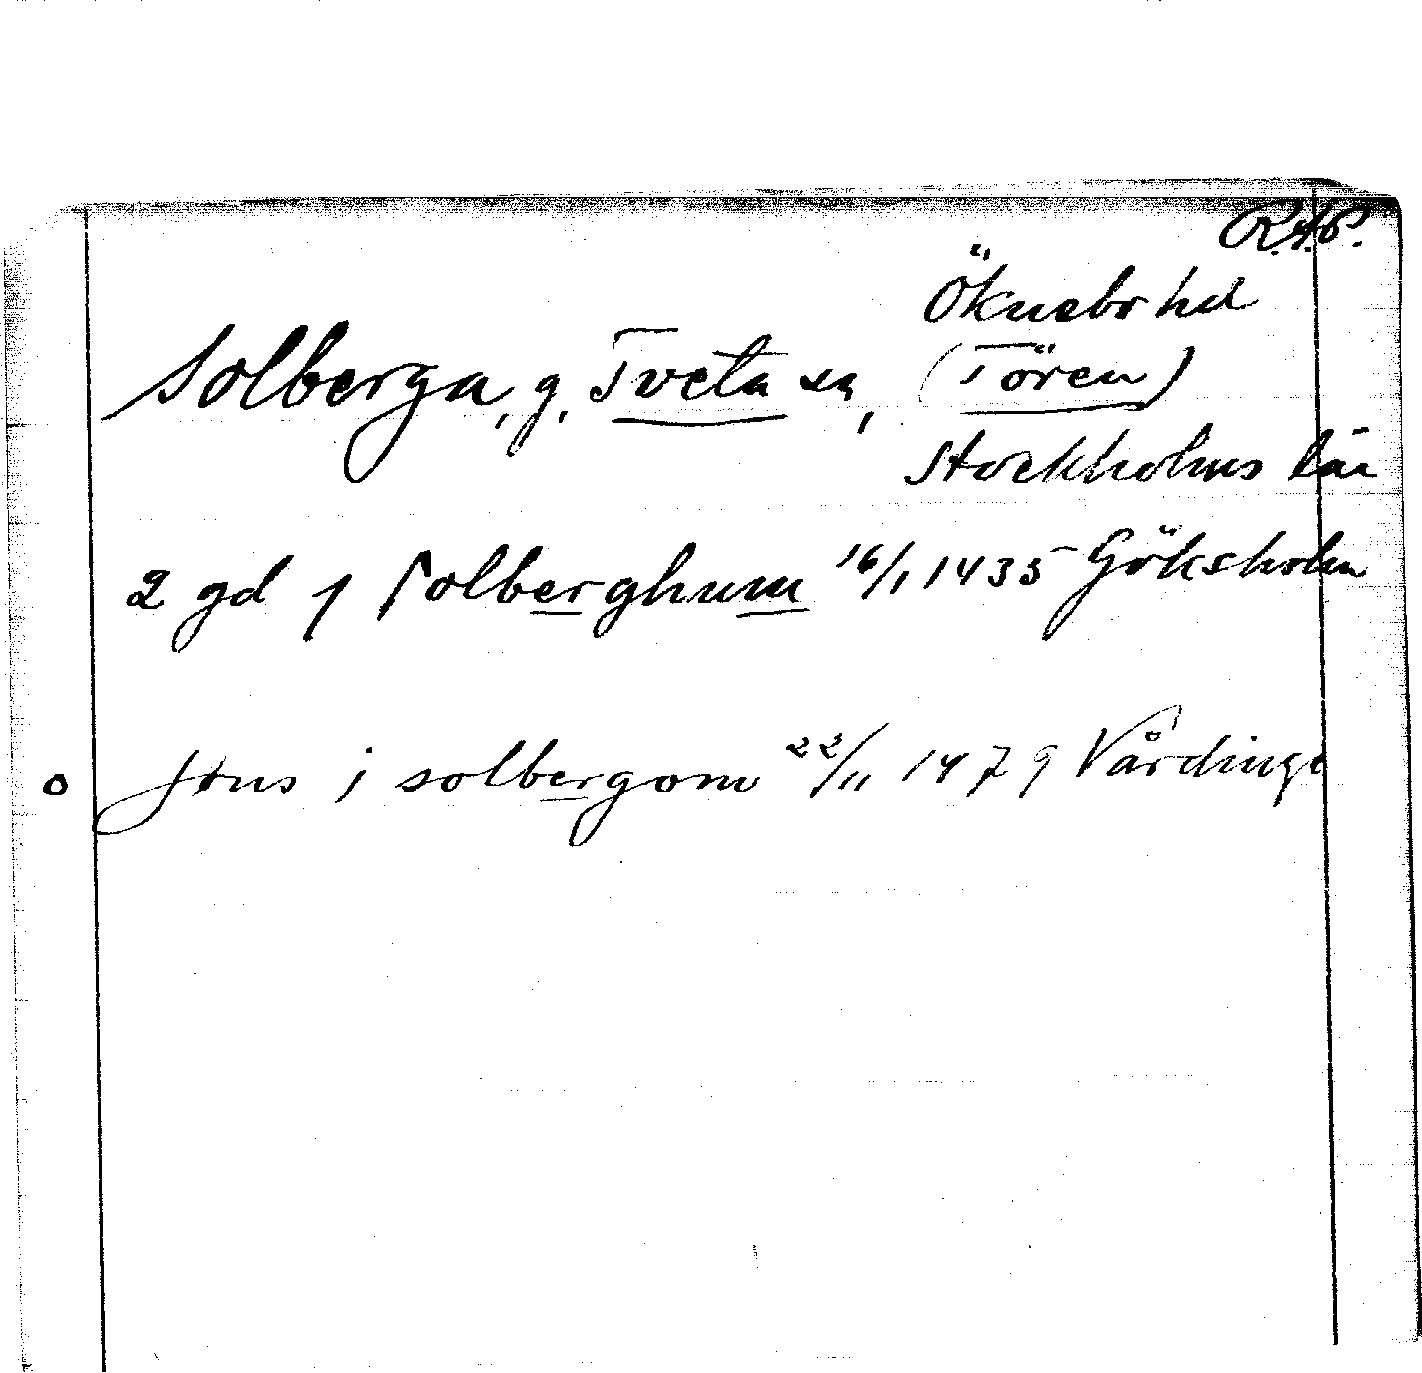 R.A.P.
Öknebo hd
Solberga, g. Tveta sn, (Tören)
Stockholms län
2 gd j Solberghum 16/1 1435 Göksholm
o Jöns i solbergom 22/11 1479 Vårdinge